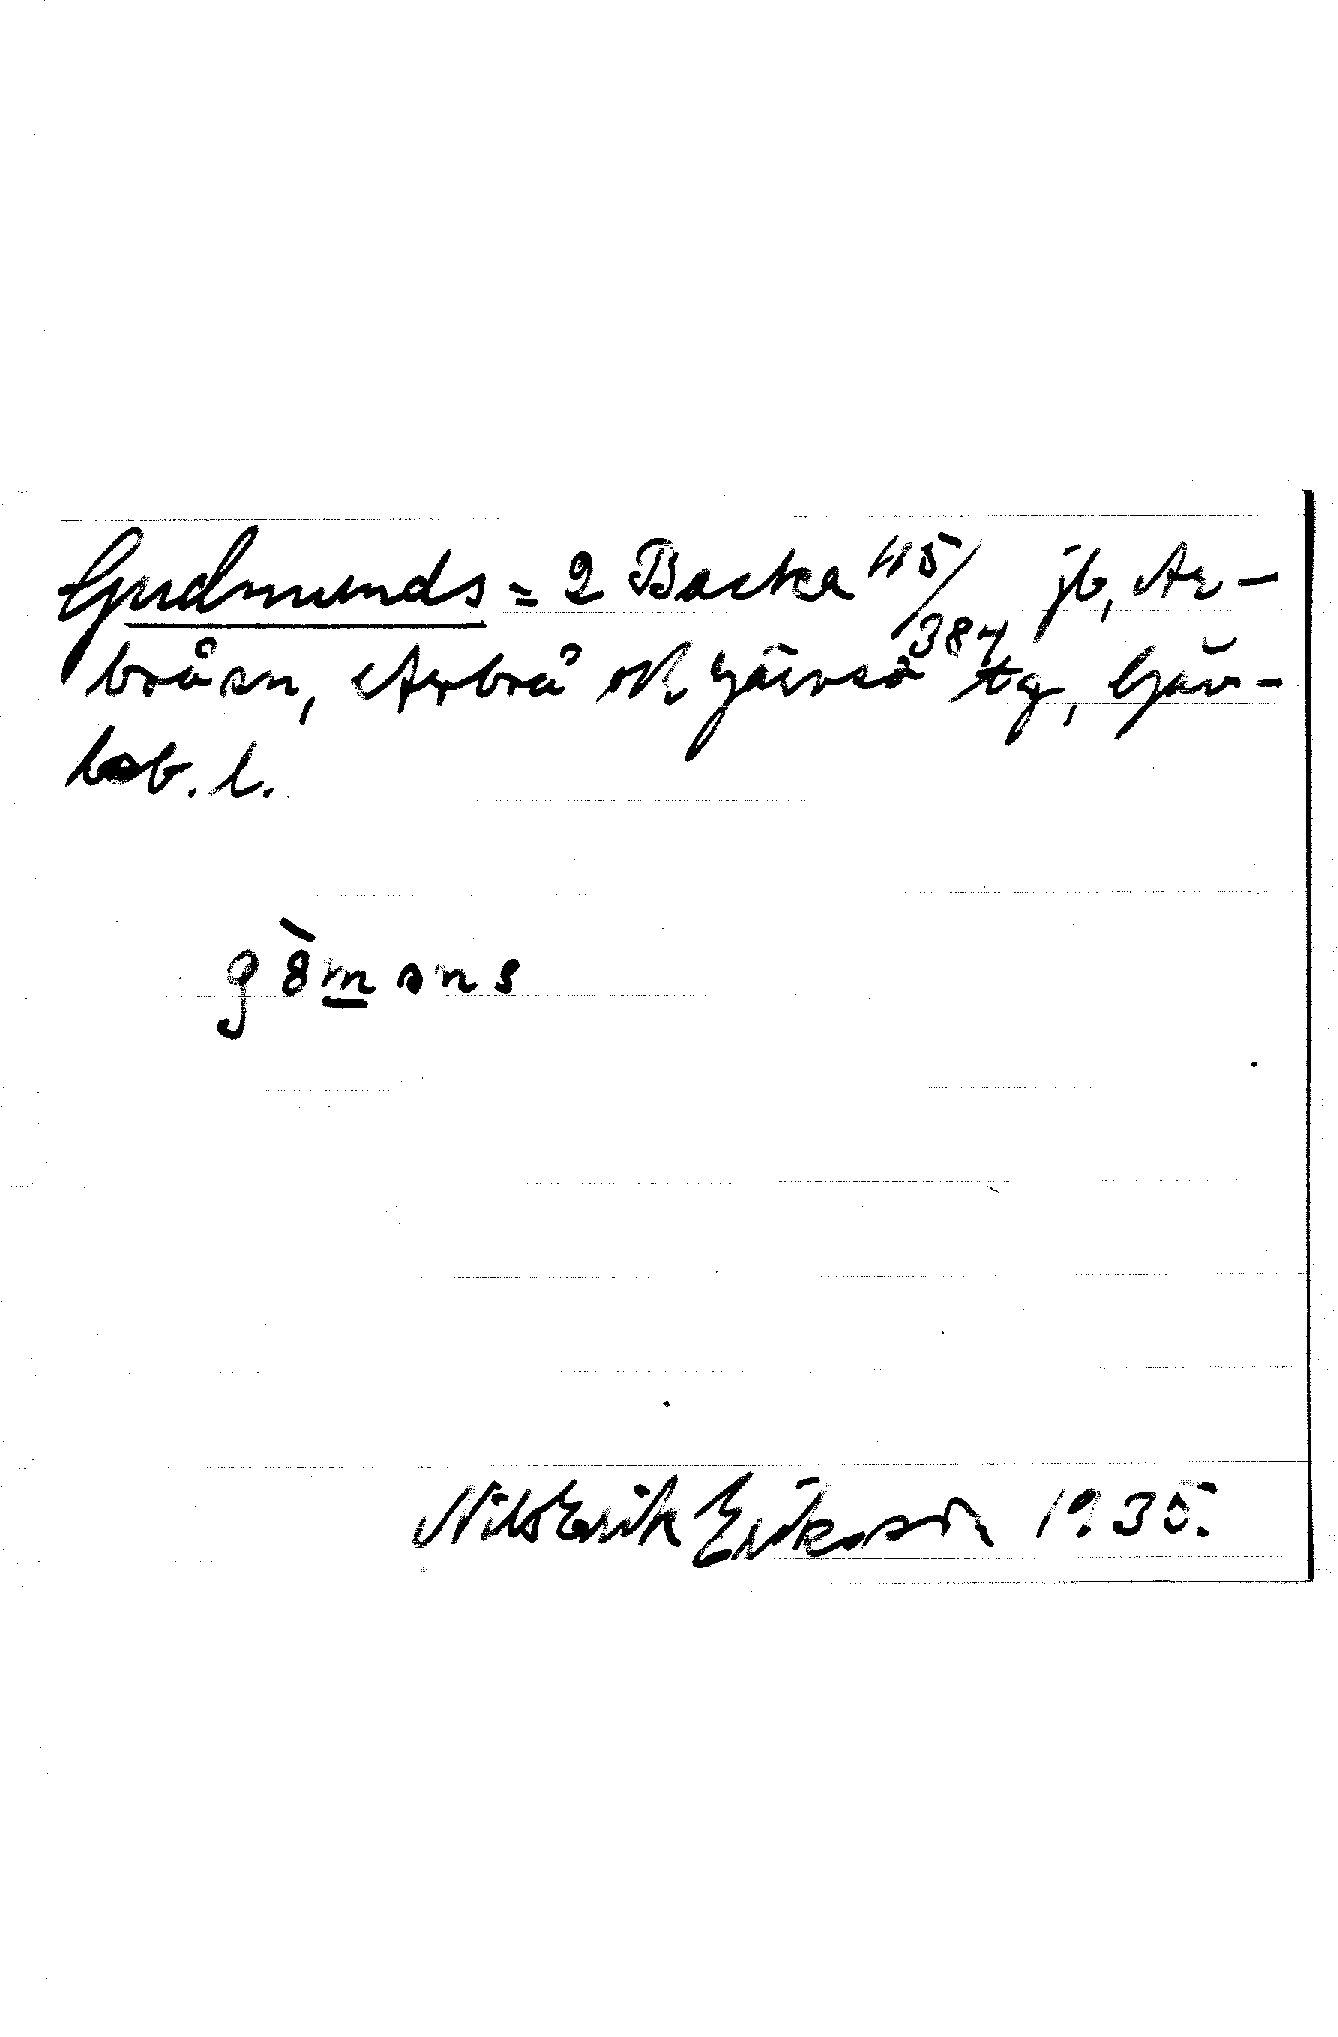 Gudmunds = 2 Backa 115/384 jb, Ar-
bråsn, Arbrå ok Järvsö tg, Gäv-
leb. l.
gòmans
Nils Erik Eriksson 1935.